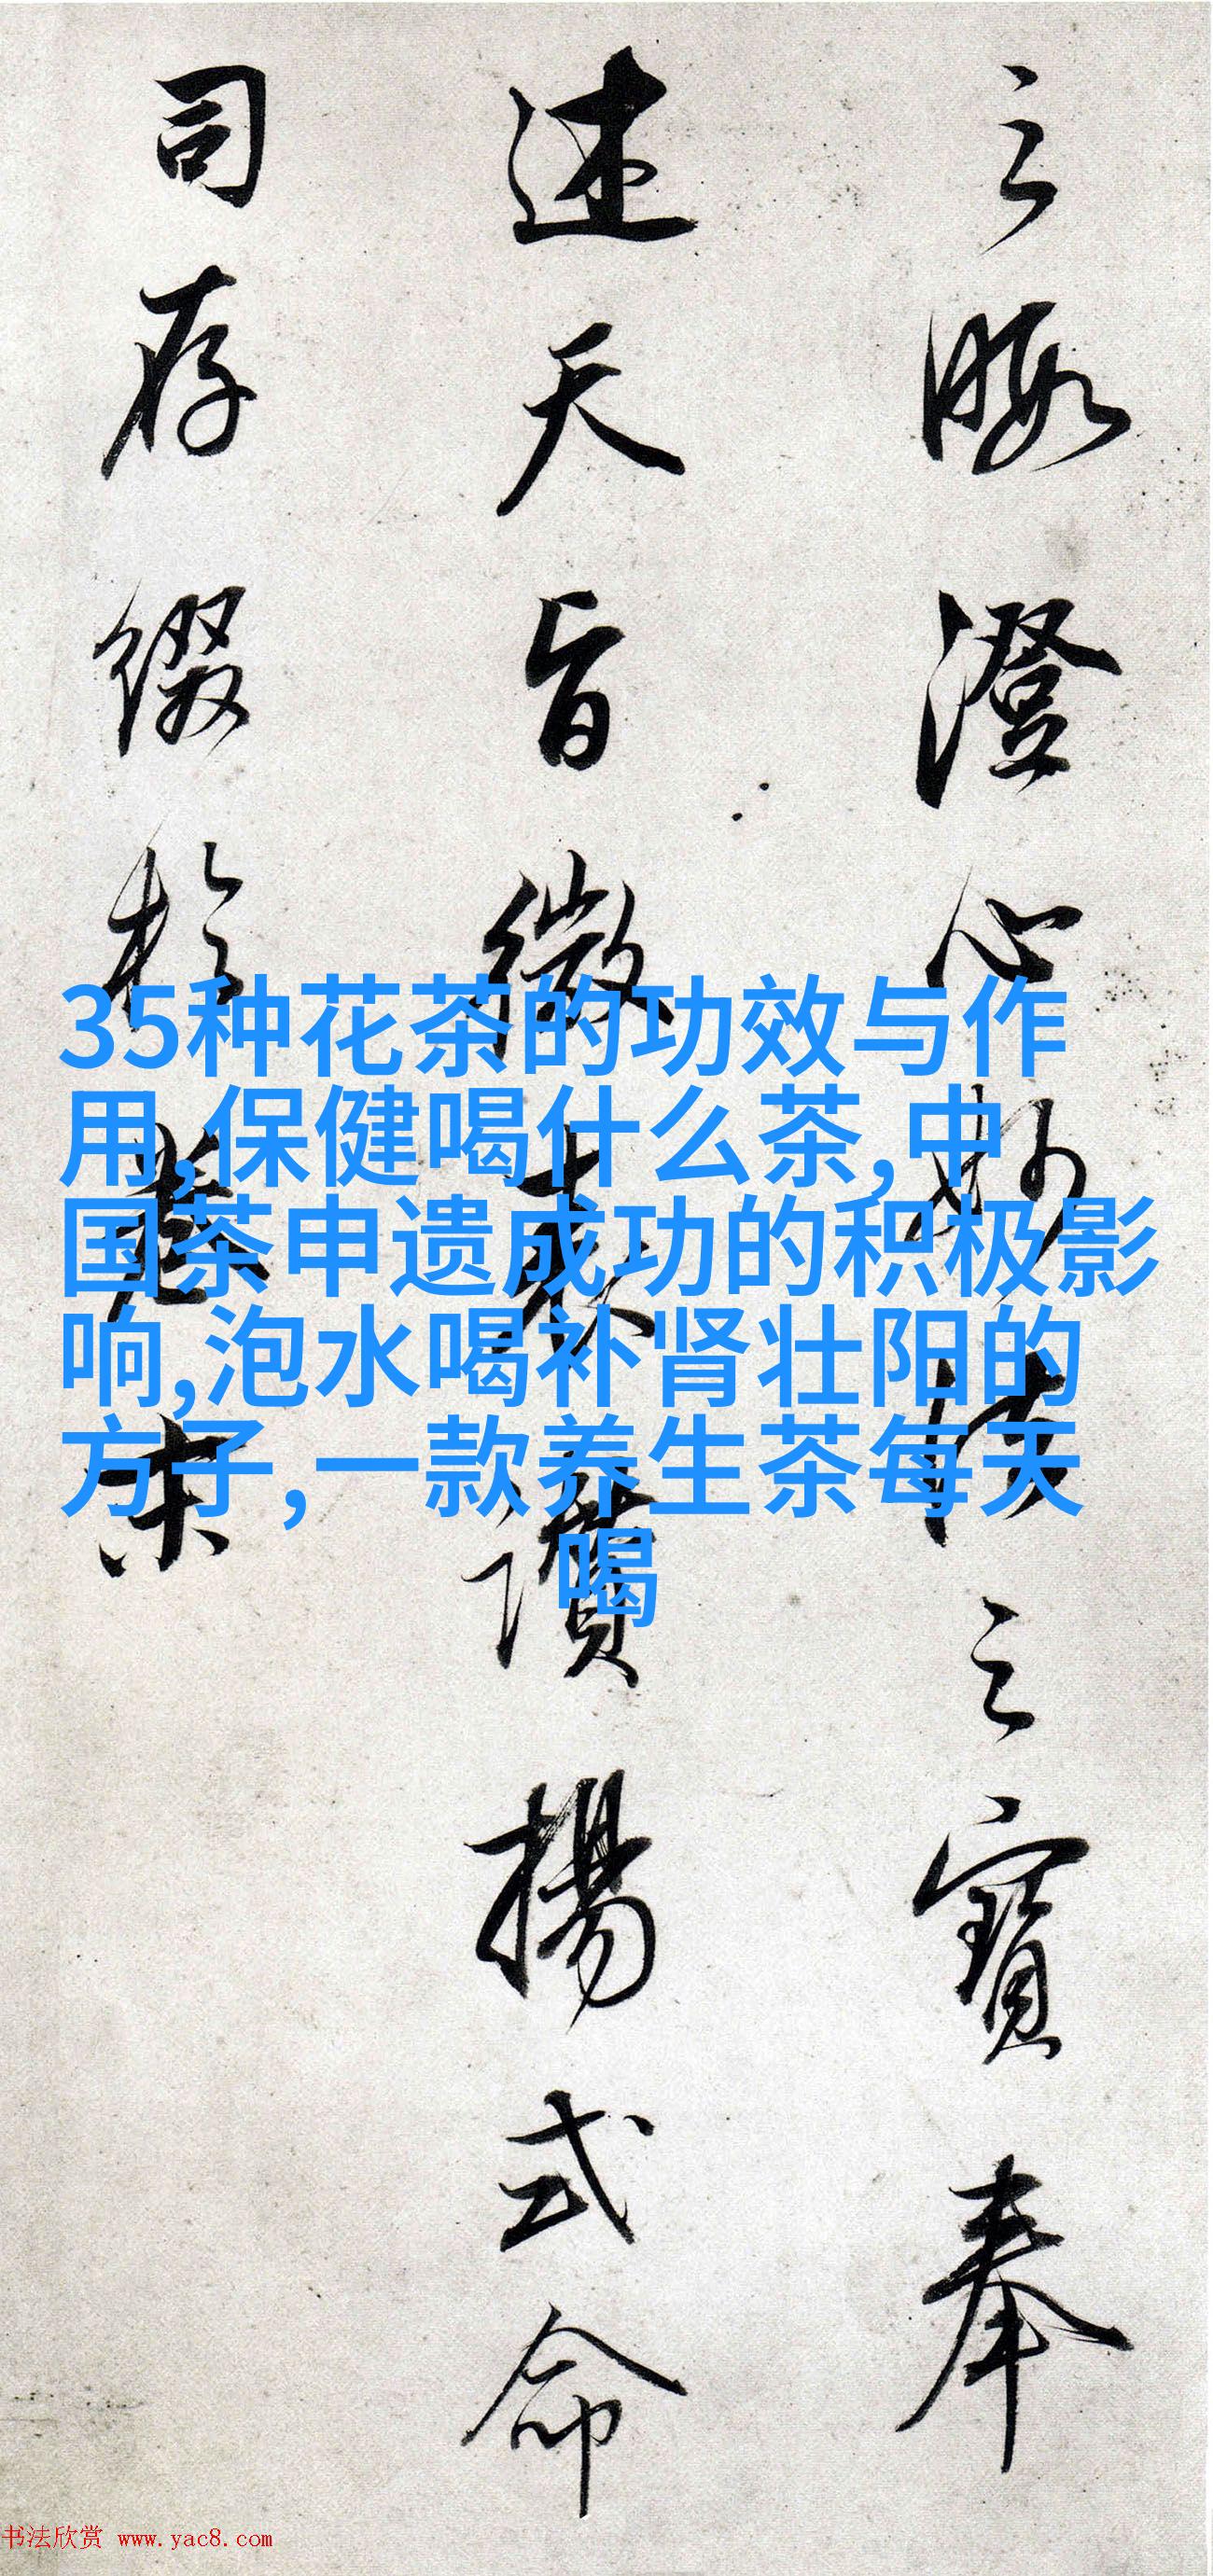 之暇澄心妙法之寶奉
述天旨微表讚揚式命
司存綴於卷末
35种花茶的功效与作
用,保健喝什么茶,中
国茶申遗成功的积极影
响,泡水喝补肾壮阳的
方子，一款养生茶每天
喝
书法欣赏 www.yac8.com